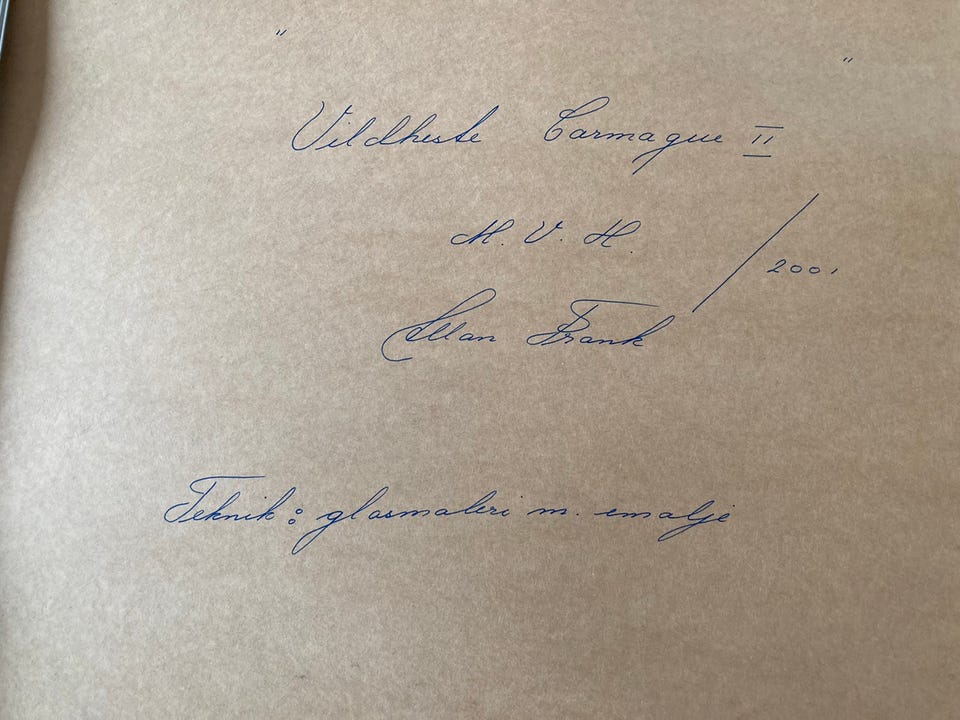 " "
Vildheste Carmague II
M. V. H.
/ 2001
Allan Frank
Teknik: glasmaleri m. emalje